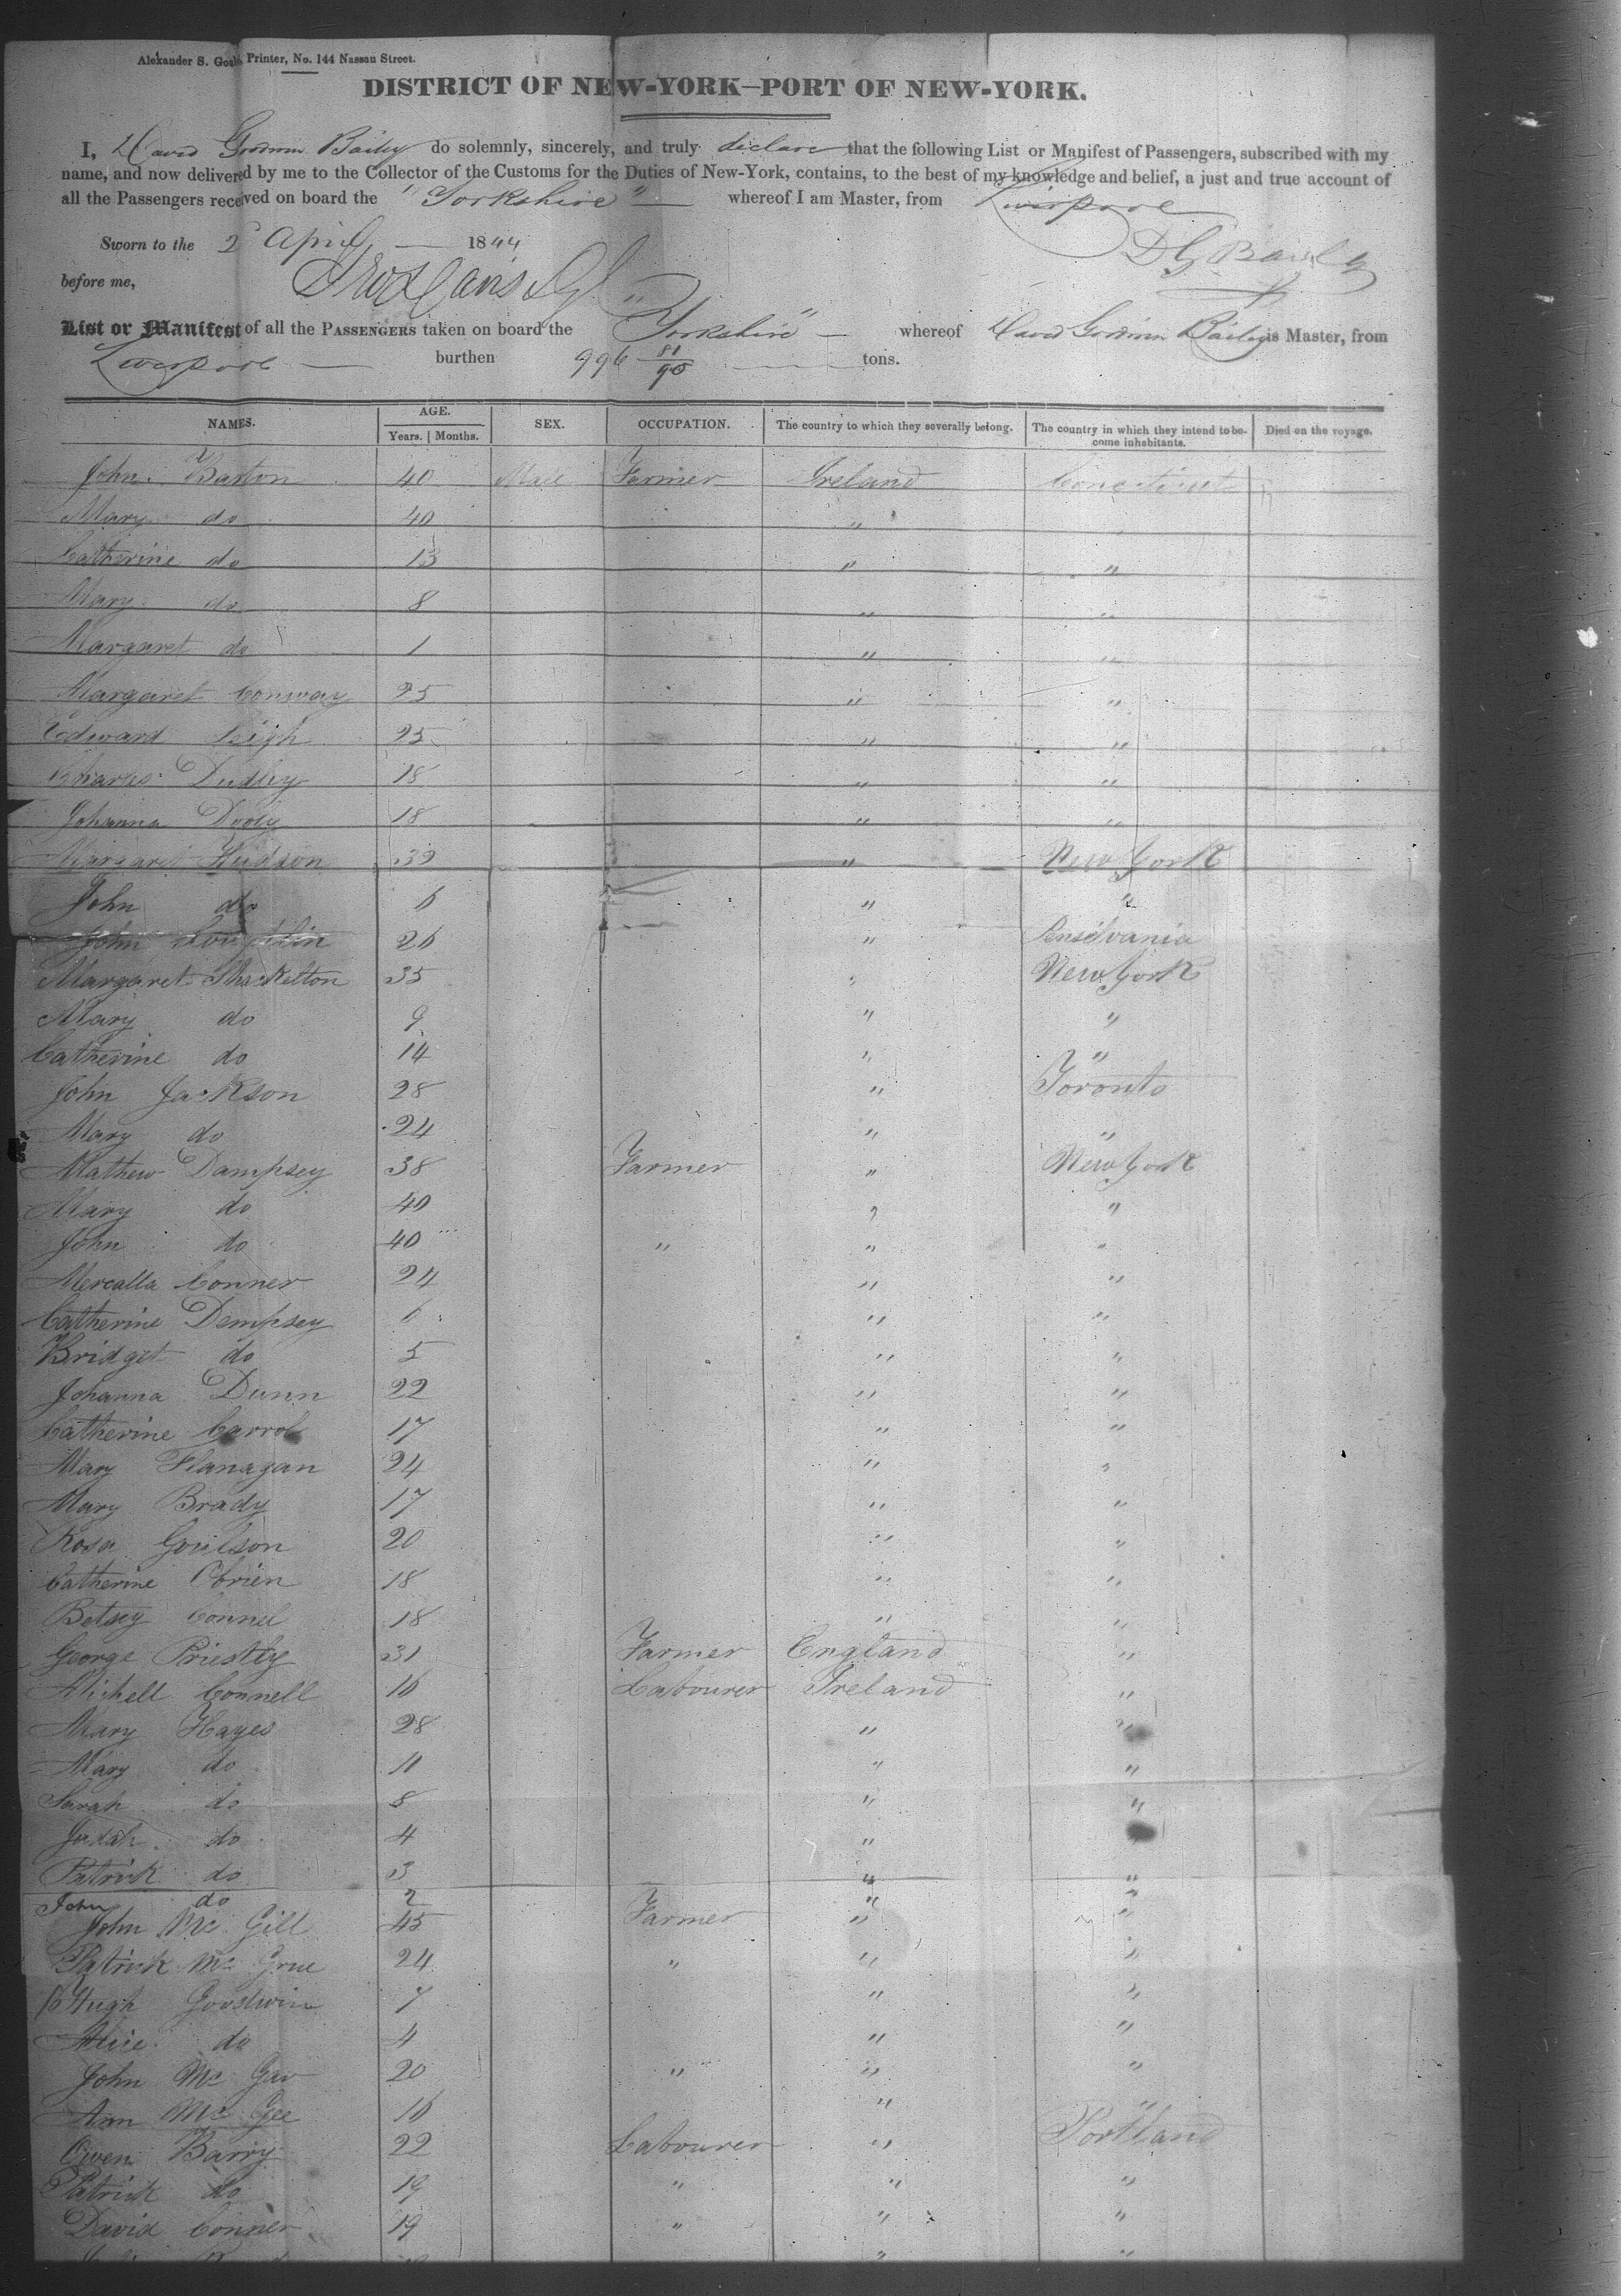 Alexander S. Gould, Printer, No. 144 Nassau Street.
DISTRICT OF NEW-YORK—PORT OF NEW-YORK.
I, David Goodwin Bailey do solemnly, sincerely, and truly declare that the following List or Manifest of Passengers, subscribed with my
name, and now delivered by me to the Collector of the Customs for the Duties of New-York, contains, to the best of my knowledge and belief, a just and true account of
all the Passengers received on board the "Yorkshire" whereof I am Master, from Liverpool
D G Baily
Sworn to the 2 April 1844
before me,
List or Manifest of all the PASSENGERS taken on board the "Yorkshire" whereof David Goodwin Bailey is Master, from
Liverpool burthen 996 81/95 tons.
NAMES. AGE. Years. Months. SEX. OCCUPATION. The country to which they severally belong. The country in which they intend to become inhabitants. Died on the voyage.
John Barton 40 Male Farmer Ireland
Mary do 40 "
Catherine do 13 " "
Mary do 8 " "
Margaret do 1 " "
Margaret Conway 25 " "
Edward Leigh 25 " "
Charles Dudley 18 " "
Johanna Dooly 18 " "
Margaret Hudson 39 " New York
John do 6 " "
John Loughlin 26 " Pensilvania
Margaret Shackelton 35 " New York
Mary do 9 " "
Catherine do 14 " "
John Jackson 28 " Toronto
Mary do 24 " "
Mathew Dampsey 38 Farmer " New York
Mary do 40 " "
John do 40 " " "
Mercalla Conner 24 " "
Catherine Dempsey 6 " "
Bridget do 5 " "
Johanna Dunn 22 " "
Catherine Carrol 17 " "
Mary Flanagan 24 " "
Mary Brady 17 " "
Rosa Goulson 20 " "
Catherine Obrien 18 " "
Betsey Connel 18 " "
George Priestly 31 Farmer England "
Michell Connell 16 Labourer Ireland "
Mary Hayes 28 " "
Mary do 11 " "
Sarah do 8 " "
Judah do 4 " "
Patrick do 3 " "
John do 2 " "
John Mc Gill 45 Farmer " "
Patrick Mc Grue 24 " " "
Hugh Goodwin 7 " "
Alice do 4 " "
John Mc Gav 20 " " "
Ann Mc Gee 16 " "
Owen Barry 22 Labourer " Portland
Patrick do 19 " " "
David Conner 19 " " "